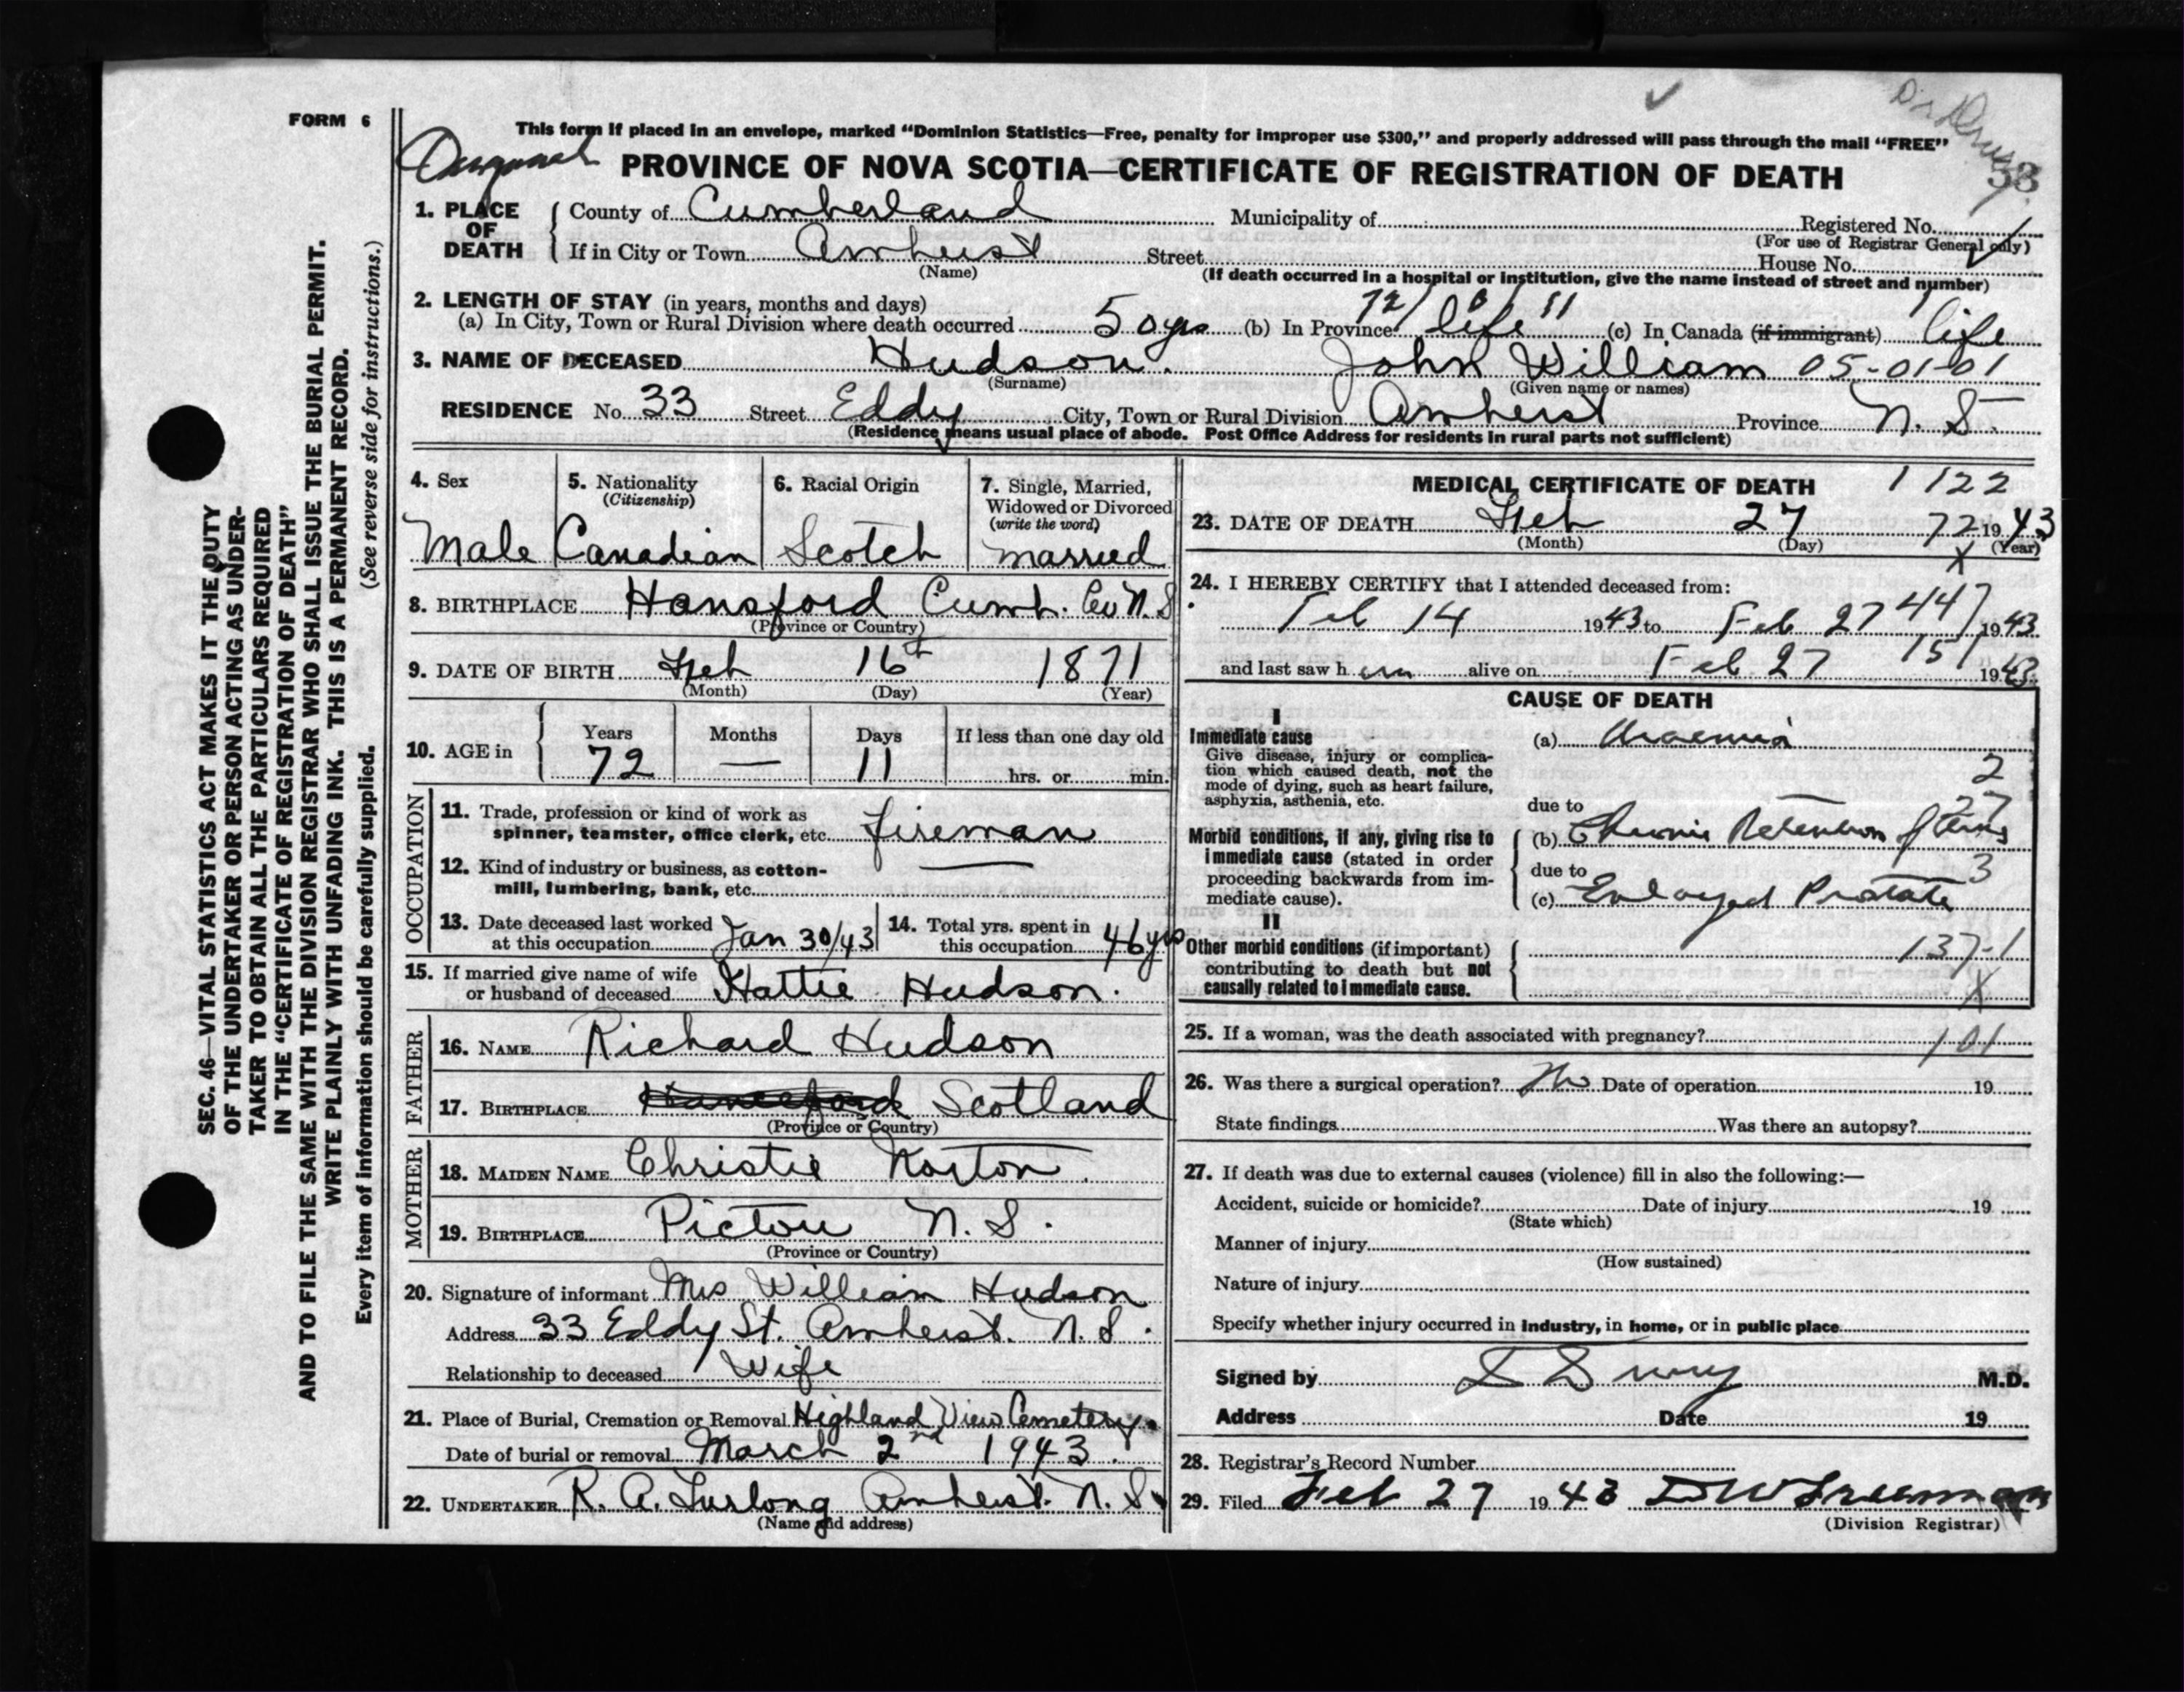 FORM 6
This form if placed in an envelope, marked “Dominion Statistics—Free, penalty for improper use $300,” and properly addressed will pass through the mail “FREE”
PROVINCE OF NOVA SCOTIA—CERTIFICATE OF REGISTRATION OF DEATH
53
1. PLACE OF DEATH
County of Cumberland Municipality of Registered No.
(For use of Registrar General only)
If in City or Town Amherst Street House No.
(Name) (If death occurred in a hospital or institution, give the name instead of street and number)
2. LENGTH OF STAY (in years, months and days) 72/0/11
(a) In City, Town or Rural Division where death occurred 50 yrs (b) In Province life (c) In Canada (if immigrant) life
3. NAME OF DECEASED Hudson. John William 05-01-01
(Surname) (Given name or names)
RESIDENCE No. 33 Street Eddy City, Town or Rural Division Amherst Province N. S.
(Residence means usual place of abode. Post Office Address for residents in rural parts not sufficient)
4. Sex
Male
5. Nationality
(Citizenship)
Canadian
6. Racial Origin
Scotch
7. Single, Married,
Widowed or Divorced
(write the word)
married
8. BIRTHPLACE Hansford Cumb. Co N. S.
(Province or Country)
9. DATE OF BIRTH Feb 16th 1871
(Month) (Day) (Year)
10. AGE in
Years Months Days If less than one day old
72 — 11 hrs. or min.
OCCUPATION
11. Trade, profession or kind of work as
spinner, teamster, office clerk, etc. fireman
12. Kind of industry or business, as cotton-
mill, lumbering, bank, etc. —
13. Date deceased last worked
at this occupation Jan 30/43
14. Total yrs. spent in
this occupation 46 yrs
15. If married give name of wife
or husband of deceased Hattie Hudson.
FATHER
16. NAME Richard Hudson
17. BIRTHPLACE Scotland
(Province or Country)
MOTHER
18. MAIDEN NAME Christie Norton.
19. BIRTHPLACE Pictou N. S.
(Province or Country)
20. Signature of informant Mrs William Hudson
Address 33 Eddy St. Amherst. N. S.
Relationship to deceased Wife
21. Place of Burial, Cremation or Removal Highland View Cemetery.
Date of burial or removal March 2nd 1943.
22. UNDERTAKER R. A. Furlong Amherst. N. S.
(Name and address)
MEDICAL CERTIFICATE OF DEATH 1122
23. DATE OF DEATH Feb 27 72 1943
(Month) (Day) (Year)
X
24. I HEREBY CERTIFY that I attended deceased from:
Feb 14 1943 to Feb 27 447 1943
and last saw h im alive on Feb 27 151 1943
CAUSE OF DEATH
I
Immediate cause
Give disease, injury or complica-
tion which caused death, not the
mode of dying, such as heart failure,
asphyxia, asthenia, etc.
(a) Uraemia
2
27
due to
Morbid conditions, if any, giving rise to
immediate cause (stated in order
proceeding backwards from im-
mediate cause).
(b) Chronic Retention of Urine
due to 3
(c) Enlarged Prostate
II
Other morbid conditions (if important)
contributing to death but not
causally related to immediate cause.
137-1
X
25. If a woman, was the death associated with pregnancy? 101
26. Was there a surgical operation? No Date of operation 19
State findings Was there an autopsy?
27. If death was due to external causes (violence) fill in also the following:—
Accident, suicide or homicide? Date of injury 19
(State which)
Manner of injury
(How sustained)
Nature of injury
Specify whether injury occurred in industry, in home, or in public place
Signed by M.D.
Address Date 19
28. Registrar's Record Number
29. Filed Feb 27 1943 D W Freeman
(Division Registrar)
SEC. 46—VITAL STATISTICS ACT MAKES IT THE DUTY
OF THE UNDERTAKER OR PERSON ACTING AS UNDER-
TAKER TO OBTAIN ALL THE PARTICULARS REQUIRED
IN THE “CERTIFICATE OF REGISTRATION OF DEATH”
AND TO FILE THE SAME WITH THE DIVISION REGISTRAR WHO SHALL ISSUE THE BURIAL PERMIT.
WRITE PLAINLY WITH UNFADING INK. THIS IS A PERMANENT RECORD.
Every item of information should be carefully supplied. (See reverse side for instructions.)